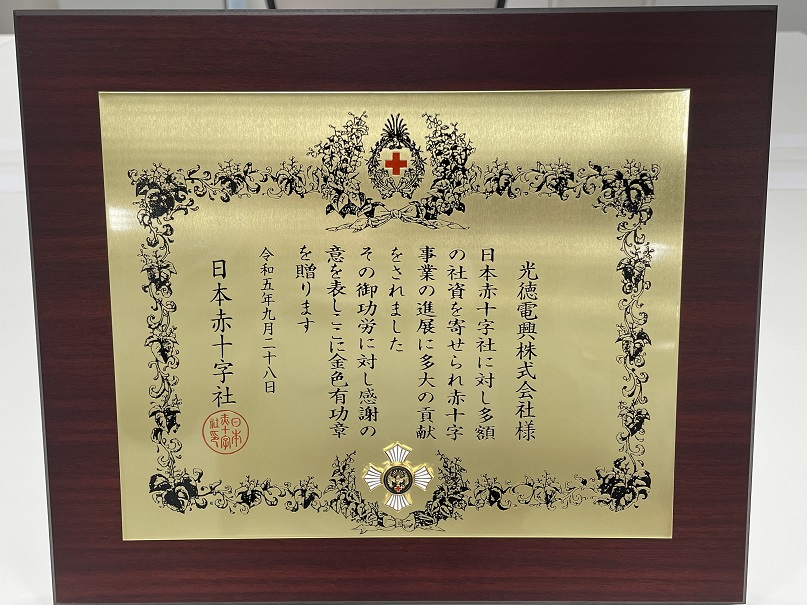 光徳電興株式会社様
日本赤十字社に対し多額
の社資を寄せられ赤十字
事業の進展に多大の貢献
をされました
その御功労に対し感謝の
意を表しここに金色有功章
を贈ります
令和五年九月二十八日
日本赤十字社
日本
赤十字
社印